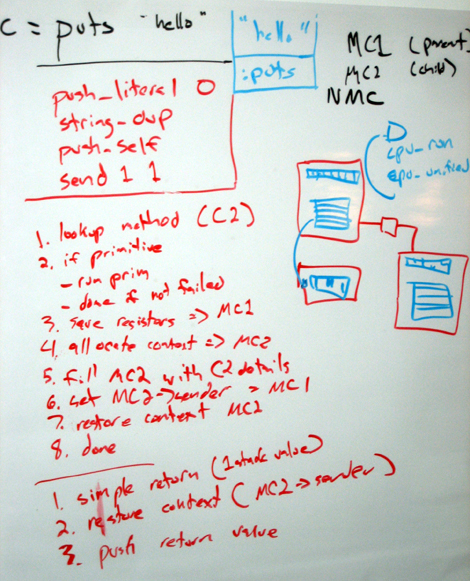 C = puts "hello"
"hello"
:puts
MC1 (parent)
MC2 (child)
NMC
push_literal 0
string_dup
push_self
send 1 1
cpu_run
cpu_unified
1. lookup method (C2)
2. if primitive
- run prim
- done if not failed
3. save registers => MC1
4. allocate context => MC2
5. fill MC2 with C2 details
6. set MC2->sender = MC1
7. restore context MC2
8. done
1. simple return (1 stack value)
2. restore context (MC2->sender)
3. push return value